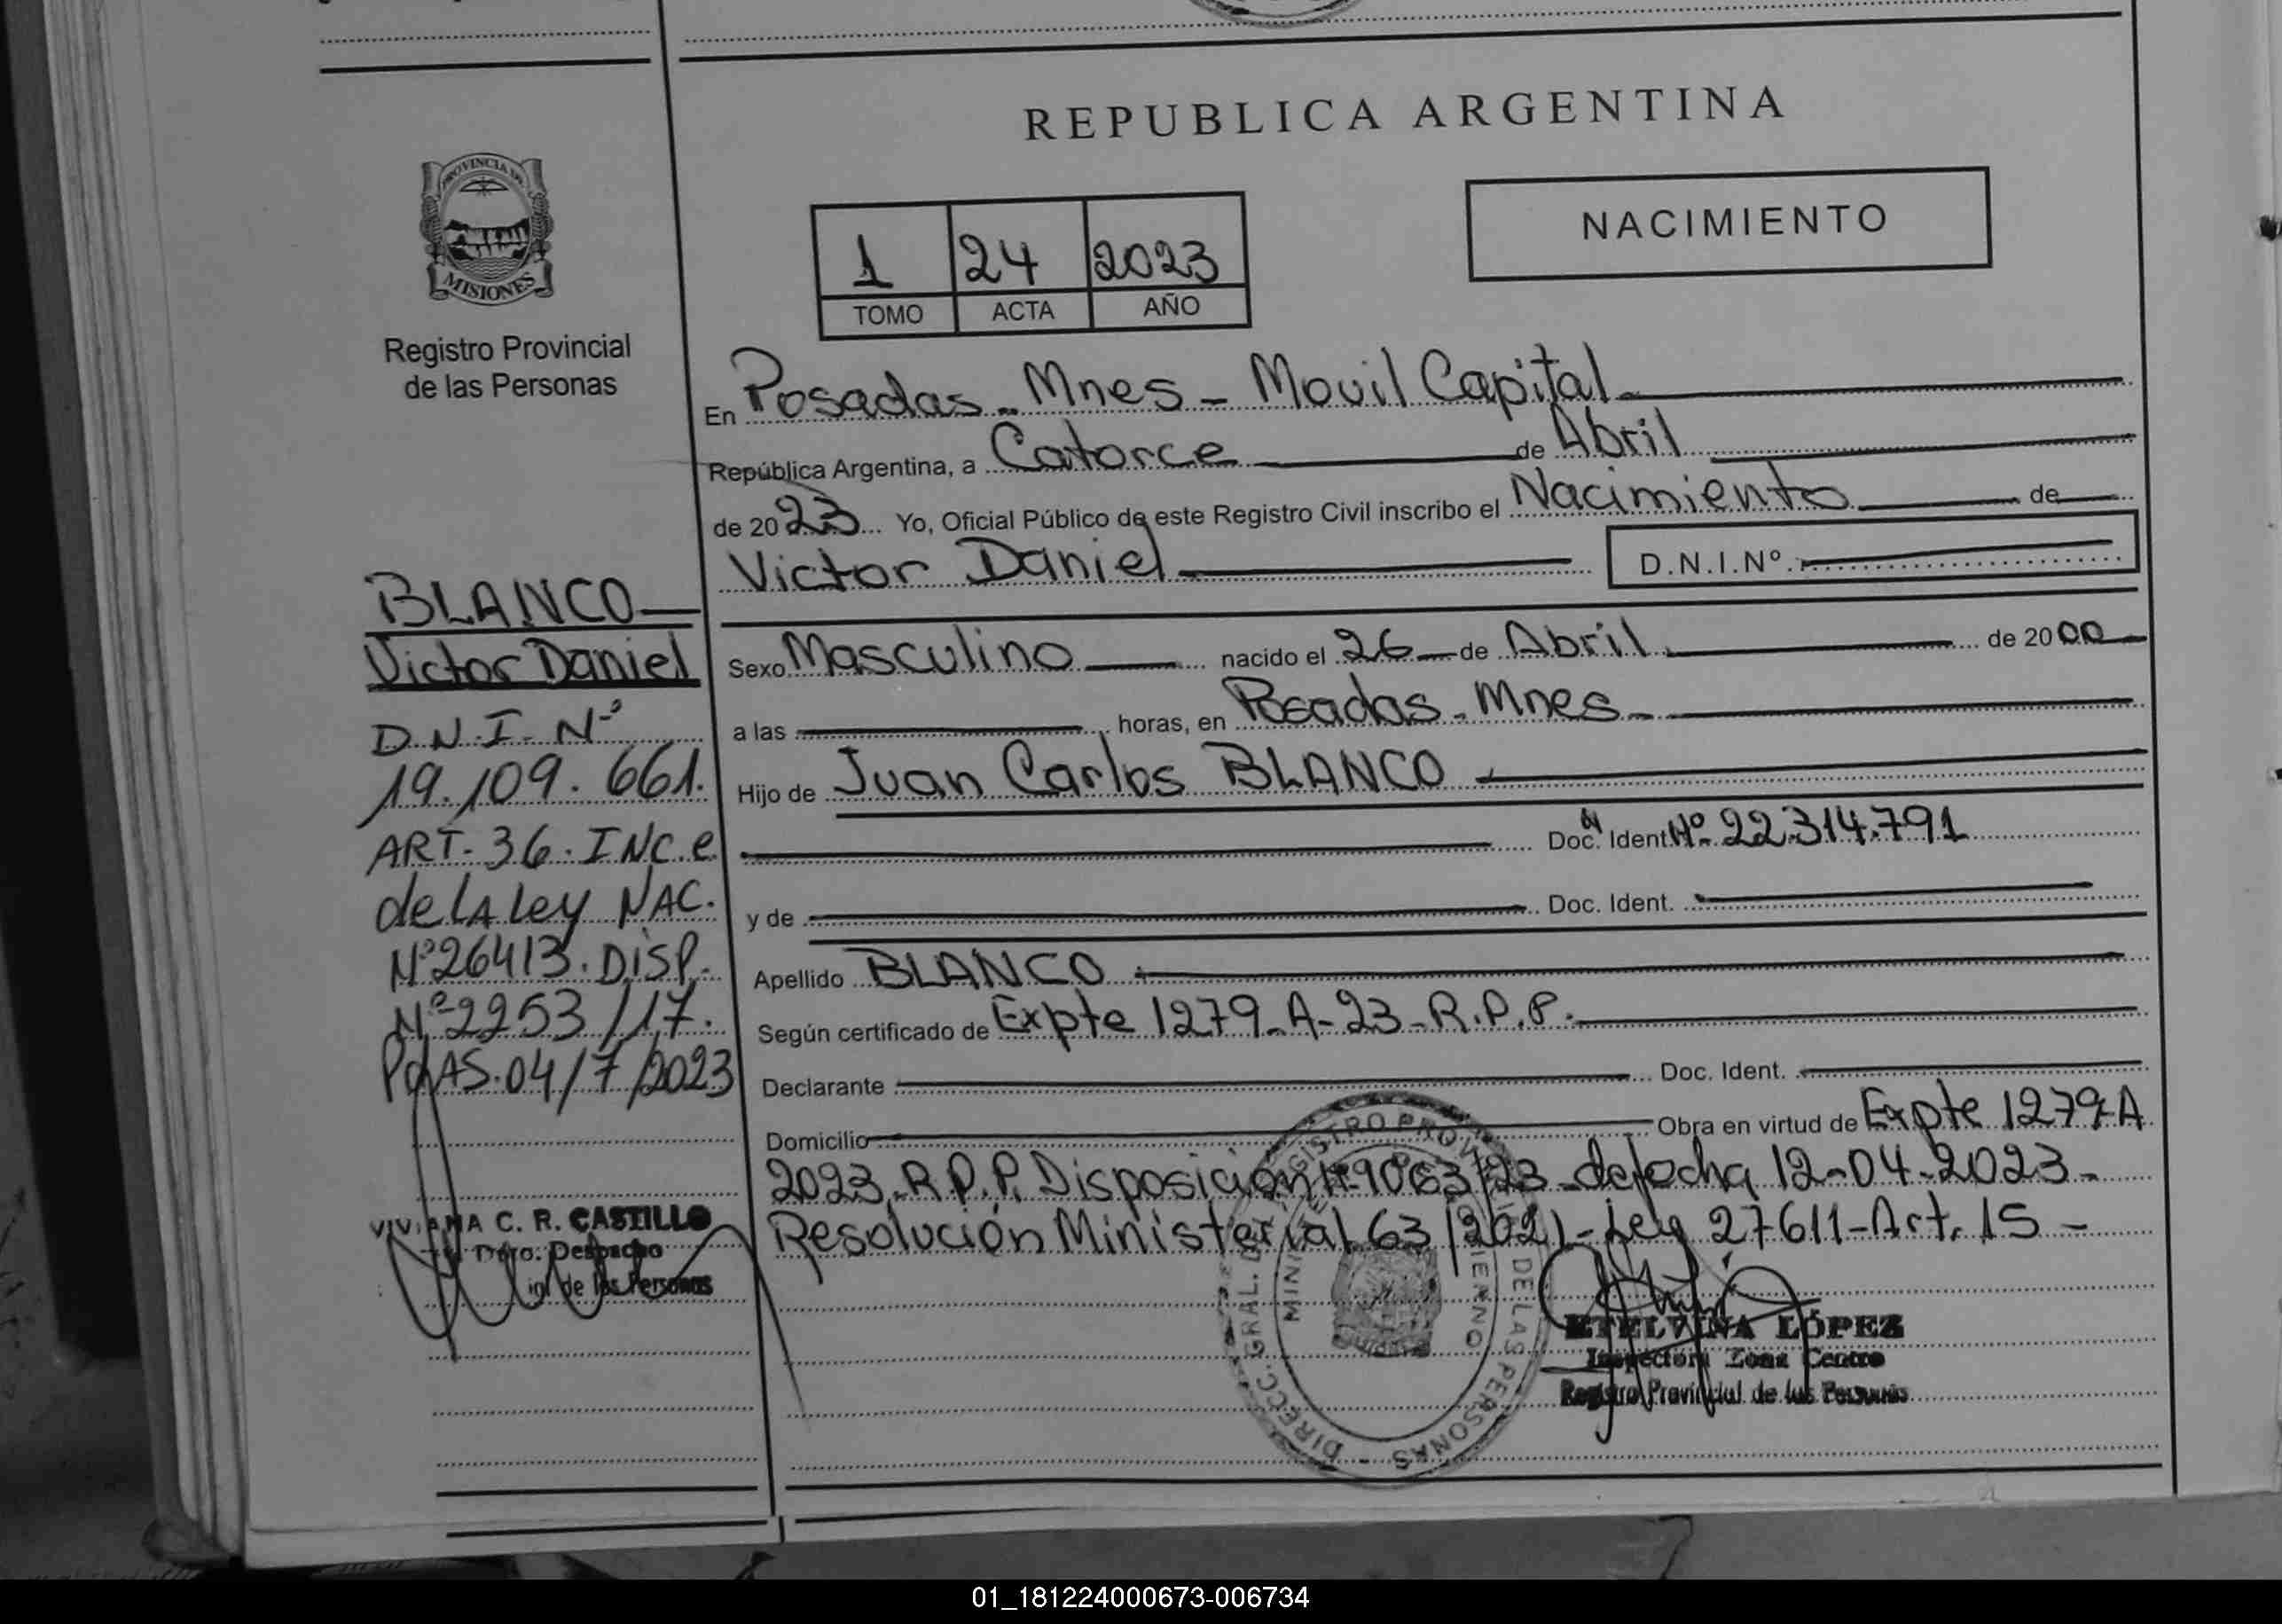 REPUBLICA ARGENTINA
PROVINCIA DE
MISIONES
Registro Provincial
de las Personas
NACIMIENTO
1 24 2023
TOMO ACTA AÑO
En Posadas - Mnes - Movil Capital
República Argentina, a Catorce de Abril
de 2023 Yo, Oficial Público de este Registro Civil inscribo el Nacimiento de
Victor Daniel D.N.I.Nº
Sexo Masculino nacido el 26 de Abril de 2000
a las horas, en Posadas - Mnes
Hijo de Juan Carlos BLANCO
Doc. Ident. Nº 22.314.791
y de Doc. Ident.
Apellido BLANCO
Según certificado de Expte 1279-A-23-R.P.P.
Declarante Doc. Ident.
Domicilio Obra en virtud de Expte 1279-A
2023-R.P.P. Disposición Nº 1063/23 de fecha 12-04-2023-
Resolución Ministerial 63/2021-Ley 27611-Art. 15-
BLANCO
Victor Daniel
D.N.I. Nº
19.109.661.
ART. 36. INC. e
de LA Ley NAC.
Nº 26413. DISP.
Nº 2253/17.
PdAS. 04/7/2023
VIVIANA C. R. CASTILLO
Dpto. Despacho
de las Personas
ETELVINA LÓPEZ
Inspectora Zona Centro
Registro Provincial de las Personas
DIRECC. GRAL. DEL REGISTRO PROVINCIAL DE LAS PERSONAS
01_181224000673-006734